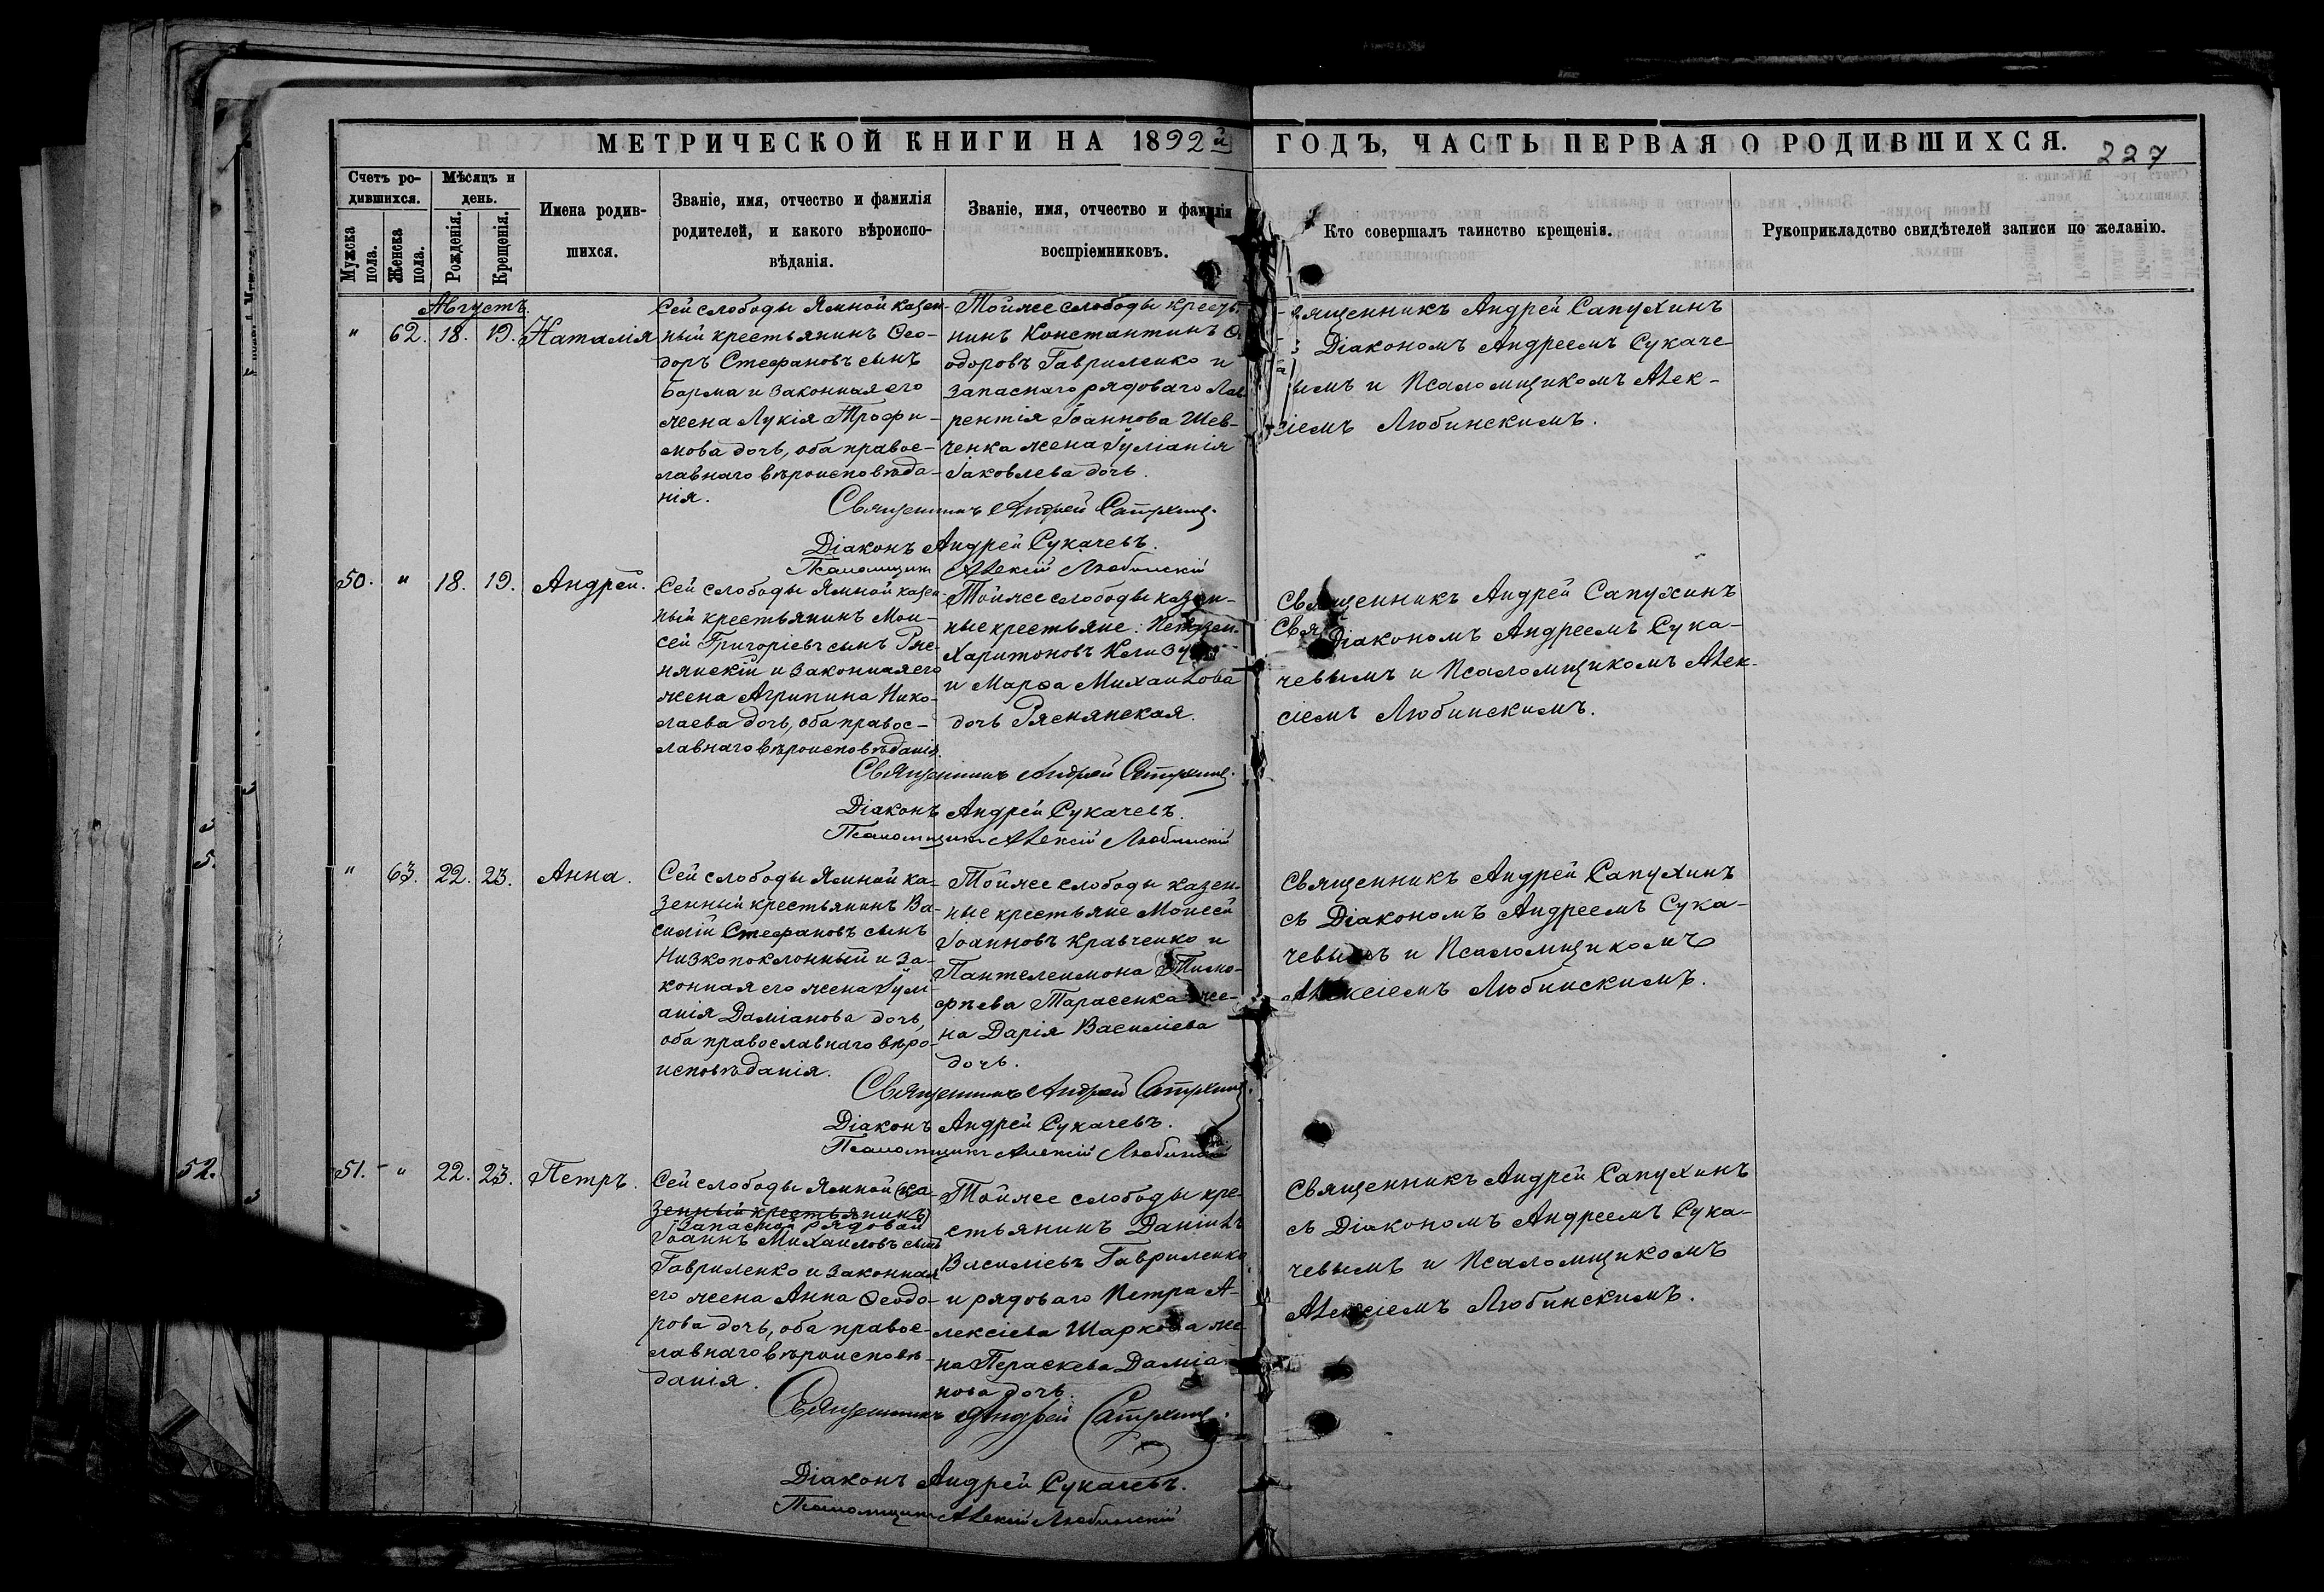 МЕТРИЧЕСКОЙ КНИГИ НА 1892й ГОДЪ, ЧАСТЬ ПЕРВАЯ О РОДИВШИХСЯ.
227
Счетъ ро-
дившихся.
Мужска пола.
Женска пола.
Мѣсяцъ и
день.
Рожденія.
Крещенія.
Имена родив-
шихся.
Званіе, имя, отчество и фамилія
родителей, и какого вѣроиспо-
вѣданія.
Званіе, имя, отчество и фамилія
воспріемниковъ.
Кто совершалъ таинство крещенія.
Рукоприкладство свидѣтелей записи по желанію.
Августъ.
" 62. 18. 19. Наталія
Сей слободы Ямной казен-
ный крестьянинъ Ѳео-
доръ Стефановъ сынъ
Барма и законная его
жена Лукія Трофи-
мова дочь, оба правос-
лавнаго вѣроисповѣда-
нія.
Тойже слободы крестья
нинъ Константинъ Ѳе
одоровъ Гавриленко и
запаснаго рядоваго Лав
рентія Іоаннова Шев-
ченка жена Іуліанія
Іаковлева дочь.
священникъ Андрей Сапухинъ
Діакономъ Андреемъ Сукаче
ымъ и Псаломщикомъ Алек-
сіемъ Любинскимъ.
Священникъ Андрей Сапухинъ.
Діаконъ Андрей Сукачевъ.
Псаломщикъ Алексій Любинскій
50. " 18. 19. Андрей.
Сей слободы Ямной казен-
ный крестьянинъ Мои-
сей Григоріевъ сынъ Ряс-
нянскій и законная его
жена Агрипина Нико-
лаева дочь, оба правос-
лавнаго вѣроисповѣданія.
Тойже слободы казен-
ные крестьяне:
Харитоновъ
и Марѳа Михаилова
дочь Ряснянская.
Священникъ Андрей Сапухинъ
Діакономъ Андреемъ Сука-
чевымъ и Псаломщикомъ Алек-
сіемъ Любинскимъ.
Священникъ Андрей Сапухинъ.
Діаконъ Андрей Сукачевъ.
Псаломщикъ Алексій Любинскій
" 63. 22. 23. Анна.
Сей слободы Ямной ка-
зенный крестьянинъ Ва-
силій Стефановъ сынъ
Низкопоклонный и за-
конная его жена Іулі-
анія Даміанова дочь,
оба православнаго вѣро-
исповѣданія.
Тойже слободы казен-
ные крестьяне Моисей
Іоанновъ Кравченко и
Пантелеимона Тимо-
фѣева Тарасенка же-
на Дарія Василіева
дочь.
Священникъ Андрей Сапухинъ
съ Діакономъ Андреемъ Сука-
чевымъ и Псаломщикомъ
Алексіемъ Любинскимъ.
Священникъ Андрей Сапухинъ.
Діаконъ Андрей Сукачевъ.
Псаломщикъ Алексій Любинскій
52.
51. - " 22. 23. Петръ.
Сей слободы Ямной (ка-
зенный крестьянинъ)
запасной рядовой
Іоаннъ Михаиловъ сынъ
Гавриленко и законная
его жена Анна Ѳеодо-
рова дочь, оба правос-
лавнаго вѣроисповѣ-
данія.
Тойже слободы кре-
стьянинъ Даніилъ
Василіевъ Гавриленко
и рядоваго Петра А-
лексіева Шаркова же-
на Параскева Даміа-
нова дочь.
Священникъ Андрей Сапухинъ
съ Діакономъ Андреемъ Сука-
чевымъ и Псаломщикомъ
Алексіемъ Любинскимъ.
Священникъ Андрей Сапухинъ.
Діаконъ Андрей Сукачевъ.
Псаломщикъ Алексій Любинскій